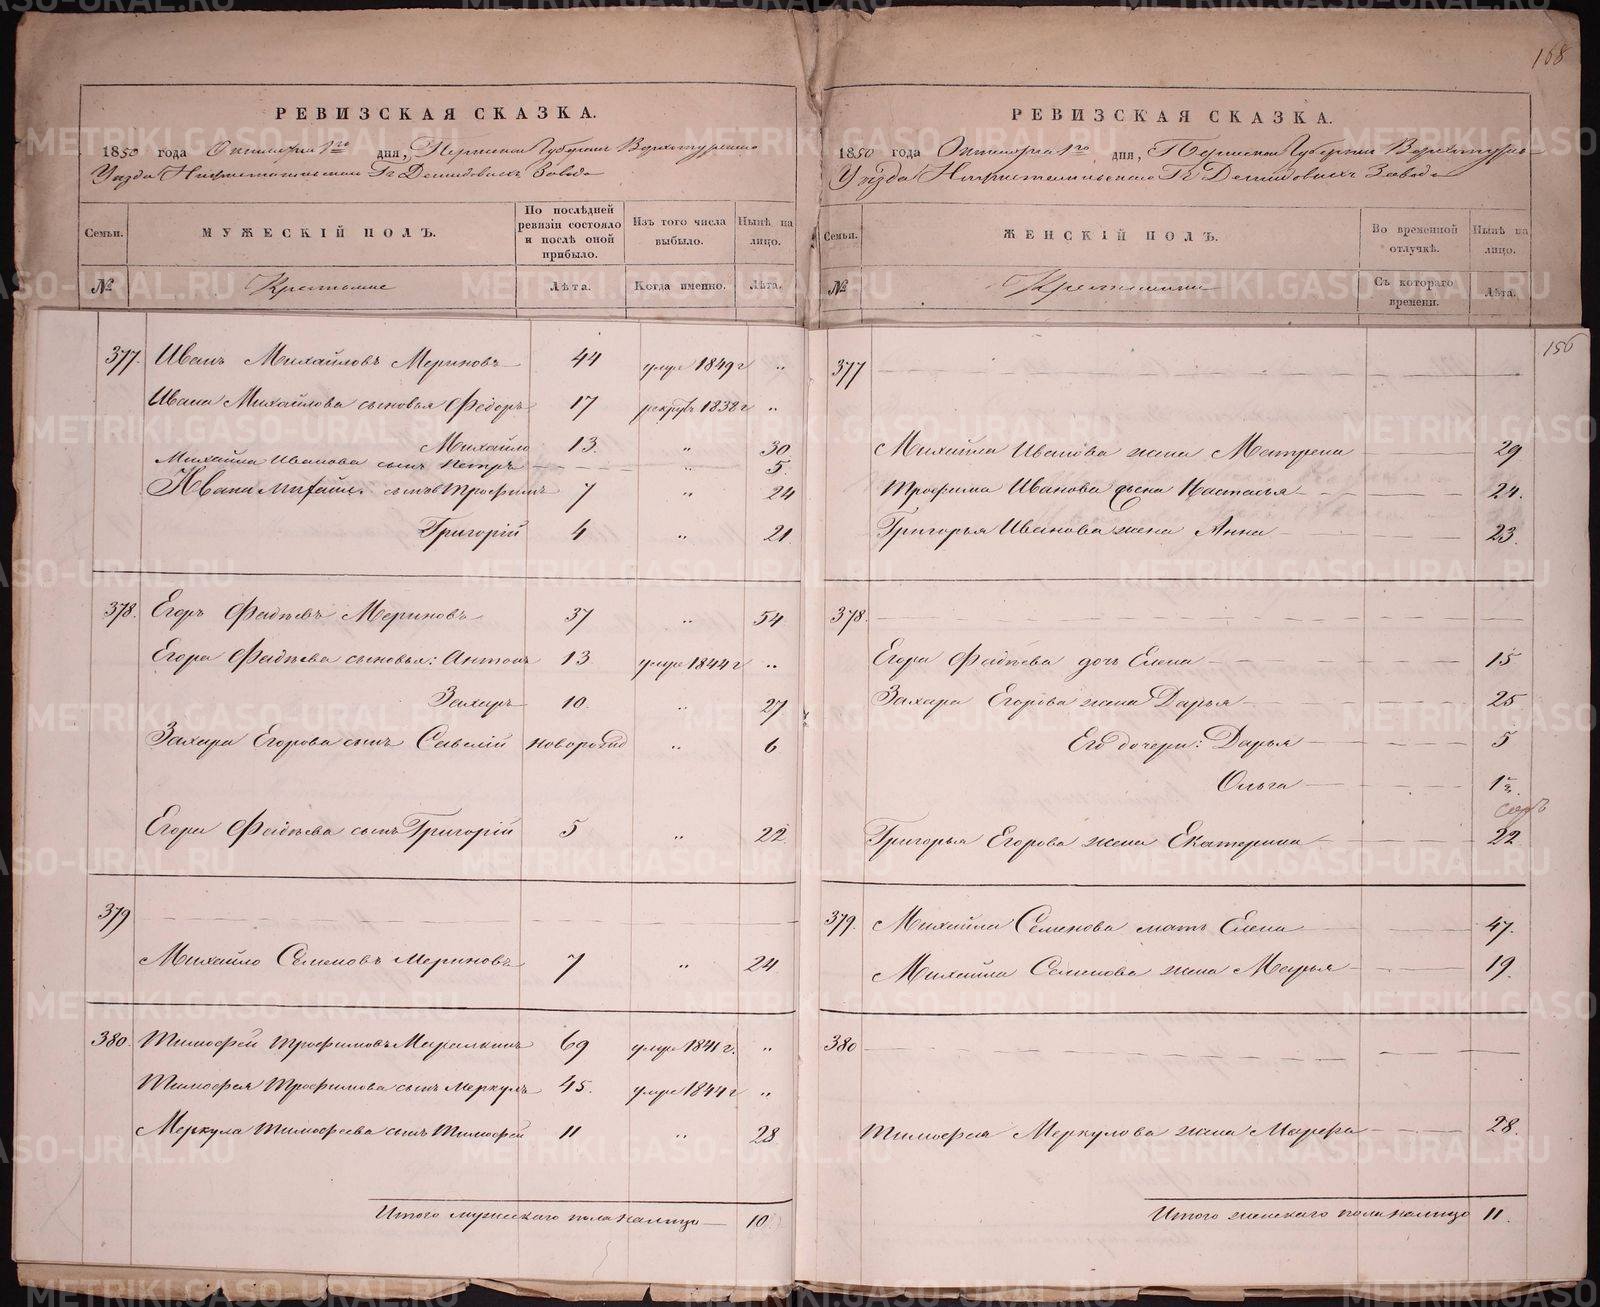 168
РЕВИЗСКАЯ СКАЗКА.
1850 года Октября 1го дня, Пермской Губернии Верхотурскаго
Уезда Нижнетагильскаго Гг Демидовыхъ Завода
Семьи. МУЖЕСКІЙ ПОЛЪ. По послѣдней ревизіи состояло и послѣ оной прибыло. Изъ того числа выбыло. Нынѣ на лицо.
№ Крестьяне Лѣта. Когда именно. Лѣта.
377. Иванъ Михайловъ Мериновъ 44 умре 1849 г „
Ивана Михайлова сыновья Федоръ 17 рекрутъ 1838 г „
Михайло 13. „ 30
Михайла Иванова сынъ Петръ „ 5.
Ивана Михайл. сынъ Трофимъ 7 „ 24
Григорій 4 „ 21.
378. Егоръ Фадѣевъ Мериновъ 37 „ 54
Егора Фадѣева сыновья: Антонъ 13 умре 1844 г „
Захаръ 10. „ 27
Захара Егорова сынъ Савелій новорожд „ 6
Егора Фадѣева сынъ Григорій 5 „ 22
379
Михайло Семеновъ Мериновъ 7 „ 24
380. Тимофей Трофимовъ 69 умре 1841 г. „
Тимофея Трофимова сынъ Меркулъ 45. умре 1844 г „
Меркула Тимофеева сынъ Тимофей 11 „ 28
Итого мужескаго пола налицо 10
РЕВИЗСКАЯ СКАЗКА.
1850 года Октября 1го дня, Пермской Губернии Верхотурскаго
Уѣзда Нижнетагильскаго Гг Демидовыхъ Завода
Семьи. ЖЕНСКІЙ ПОЛЪ. Во временной отлучкѣ. Нынѣ на лицо.
№ Крестьянки Съ котораго времени. Лѣта.
156
377
Михайла Иванова жена Матрена 29
Трофима Иванова жена Настасья 24.
Григорья Иванова жена Анна 23.
378.
Егора Фадѣева дочь Елена 15
Захара Егорова жена Дарья 25
Его дочери: Дарья 5
Ольга 1½.
Григорья Егорова жена Екатерина 22
379. Михайла Семенова мать Елена 47.
Михайла Семенова жена Марья 19.
380
Тимофея Меркулова жена Марфа 28.
Итого женскаго пола налицо 11.
METRIKI.GASO-URAL.RU